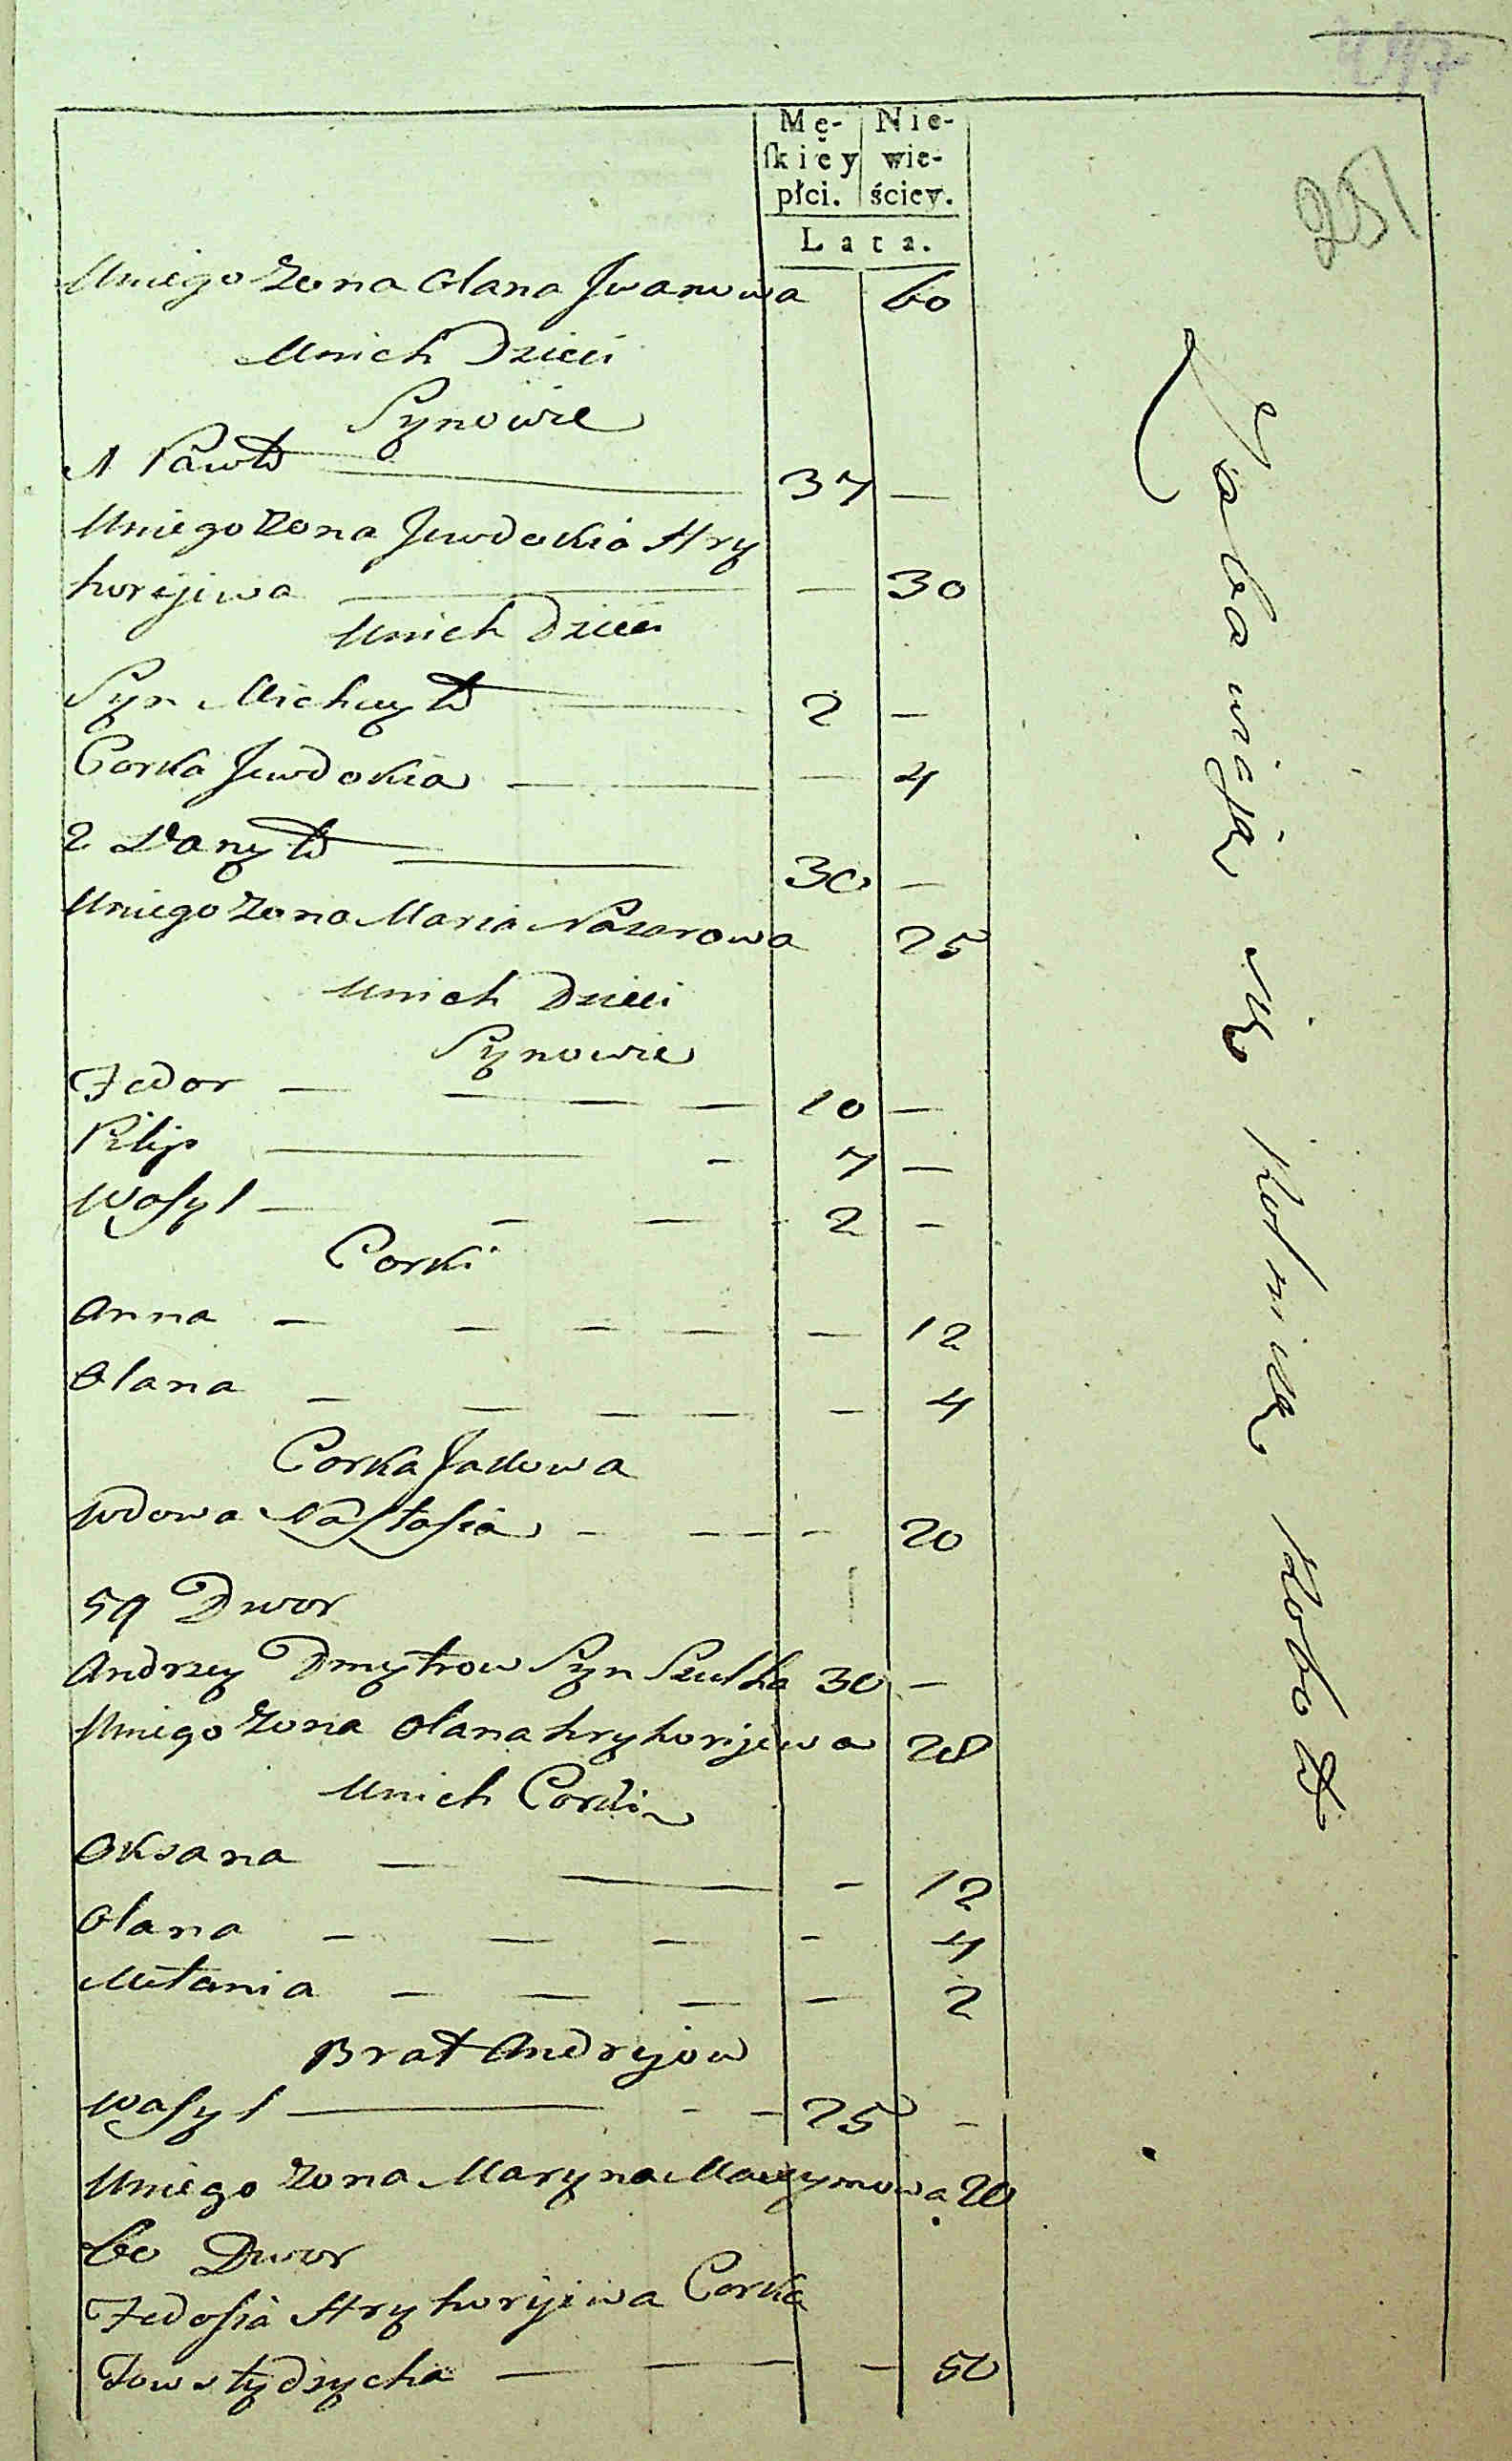 251
Mę- Nie-
ſkiey wie-
płci. ściey.
Lata.
Uniego Zona Olana Jwanowa 60
Unich Dzieci
Synowie
1 Pawło 37 —
Uniego Zona Jewdokia Hry
horyjewa — 30
Unich Dzieci
Syn Michayło 2 —
Corka Jewdokia — 4
2 Danyło 30 —
Uniego Zona Maria Nazarowa 25
Unich Dzieci
Synowie
Fedor — 10 —
Pilip — 7 —
Waſyl — 2 —
Corki
Anna — 12
Olana — 4
Corka
Wdowa Naſtaſia — 20
59 Dwor
Andrzey Dmytrow Syn Szulha 30 —
Uniego Zona Olana hryhorijewa 28
Unich Corki
Oksana — 12
Olana — 4
Mełania — 2
Brat Andryjow
Waſyl — 25 —
Uniego Zona Maryna 20
60 Dwor
Fedoſia Hryhoryjewa Corka
Towstydzycha — 50
Zabawiają się Rolniczą Robotą